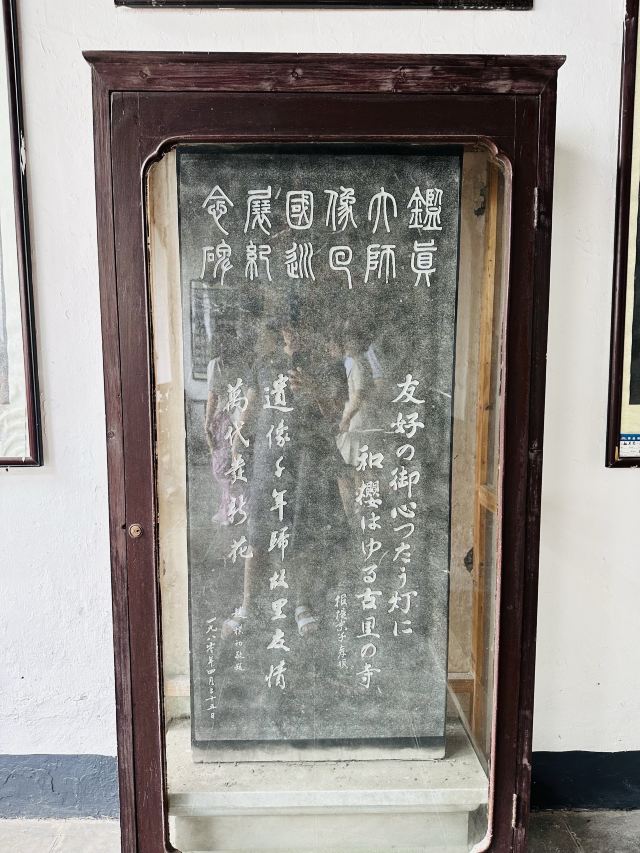 鑑眞
大師
像回
國巡
展紀
念碑
友好の御心つたう灯に
和櫻はゆる古里の寺
遺像千年歸故里友情
萬代發新花
一九八〇年四月二十五日